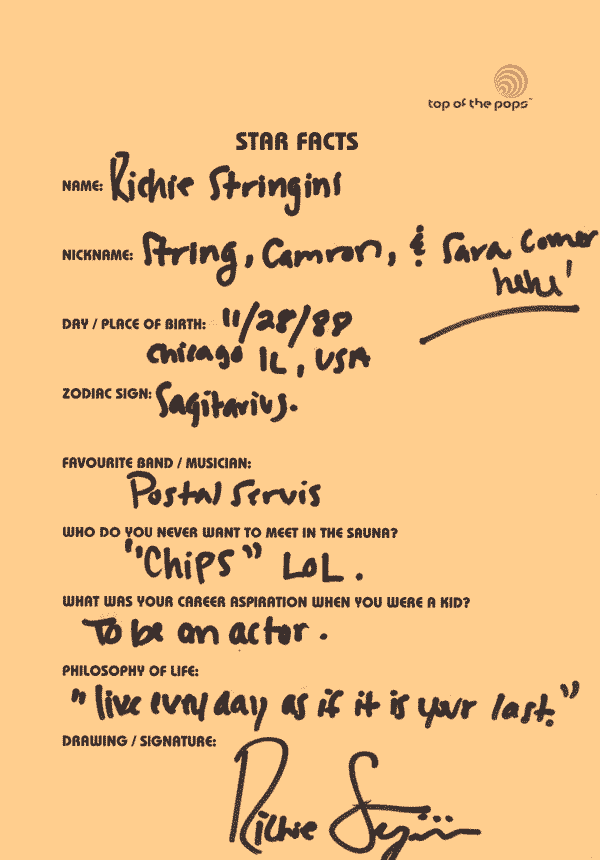 top of the pops™
STAR FACTS
NAME: Richie Stringini
NICKNAME: String, Camron, & Sara comer
hehe!
DAY / PLACE OF BIRTH: 11/28/88
chicago IL, USA
ZODIAC SIGN: Sagitarius.
FAVOURITE BAND / MUSICIAN:
Postal Servis
WHO DO YOU NEVER WANT TO MEET IN THE SAUNA?
"Chips" LOL.
WHAT WAS YOUR CAREER ASPIRATION WHEN YOU WERE A KID?
To be an actor.
PHILOSOPHY OF LIFE:
"live every day as if it is your last."
DRAWING / SIGNATURE:
Richie